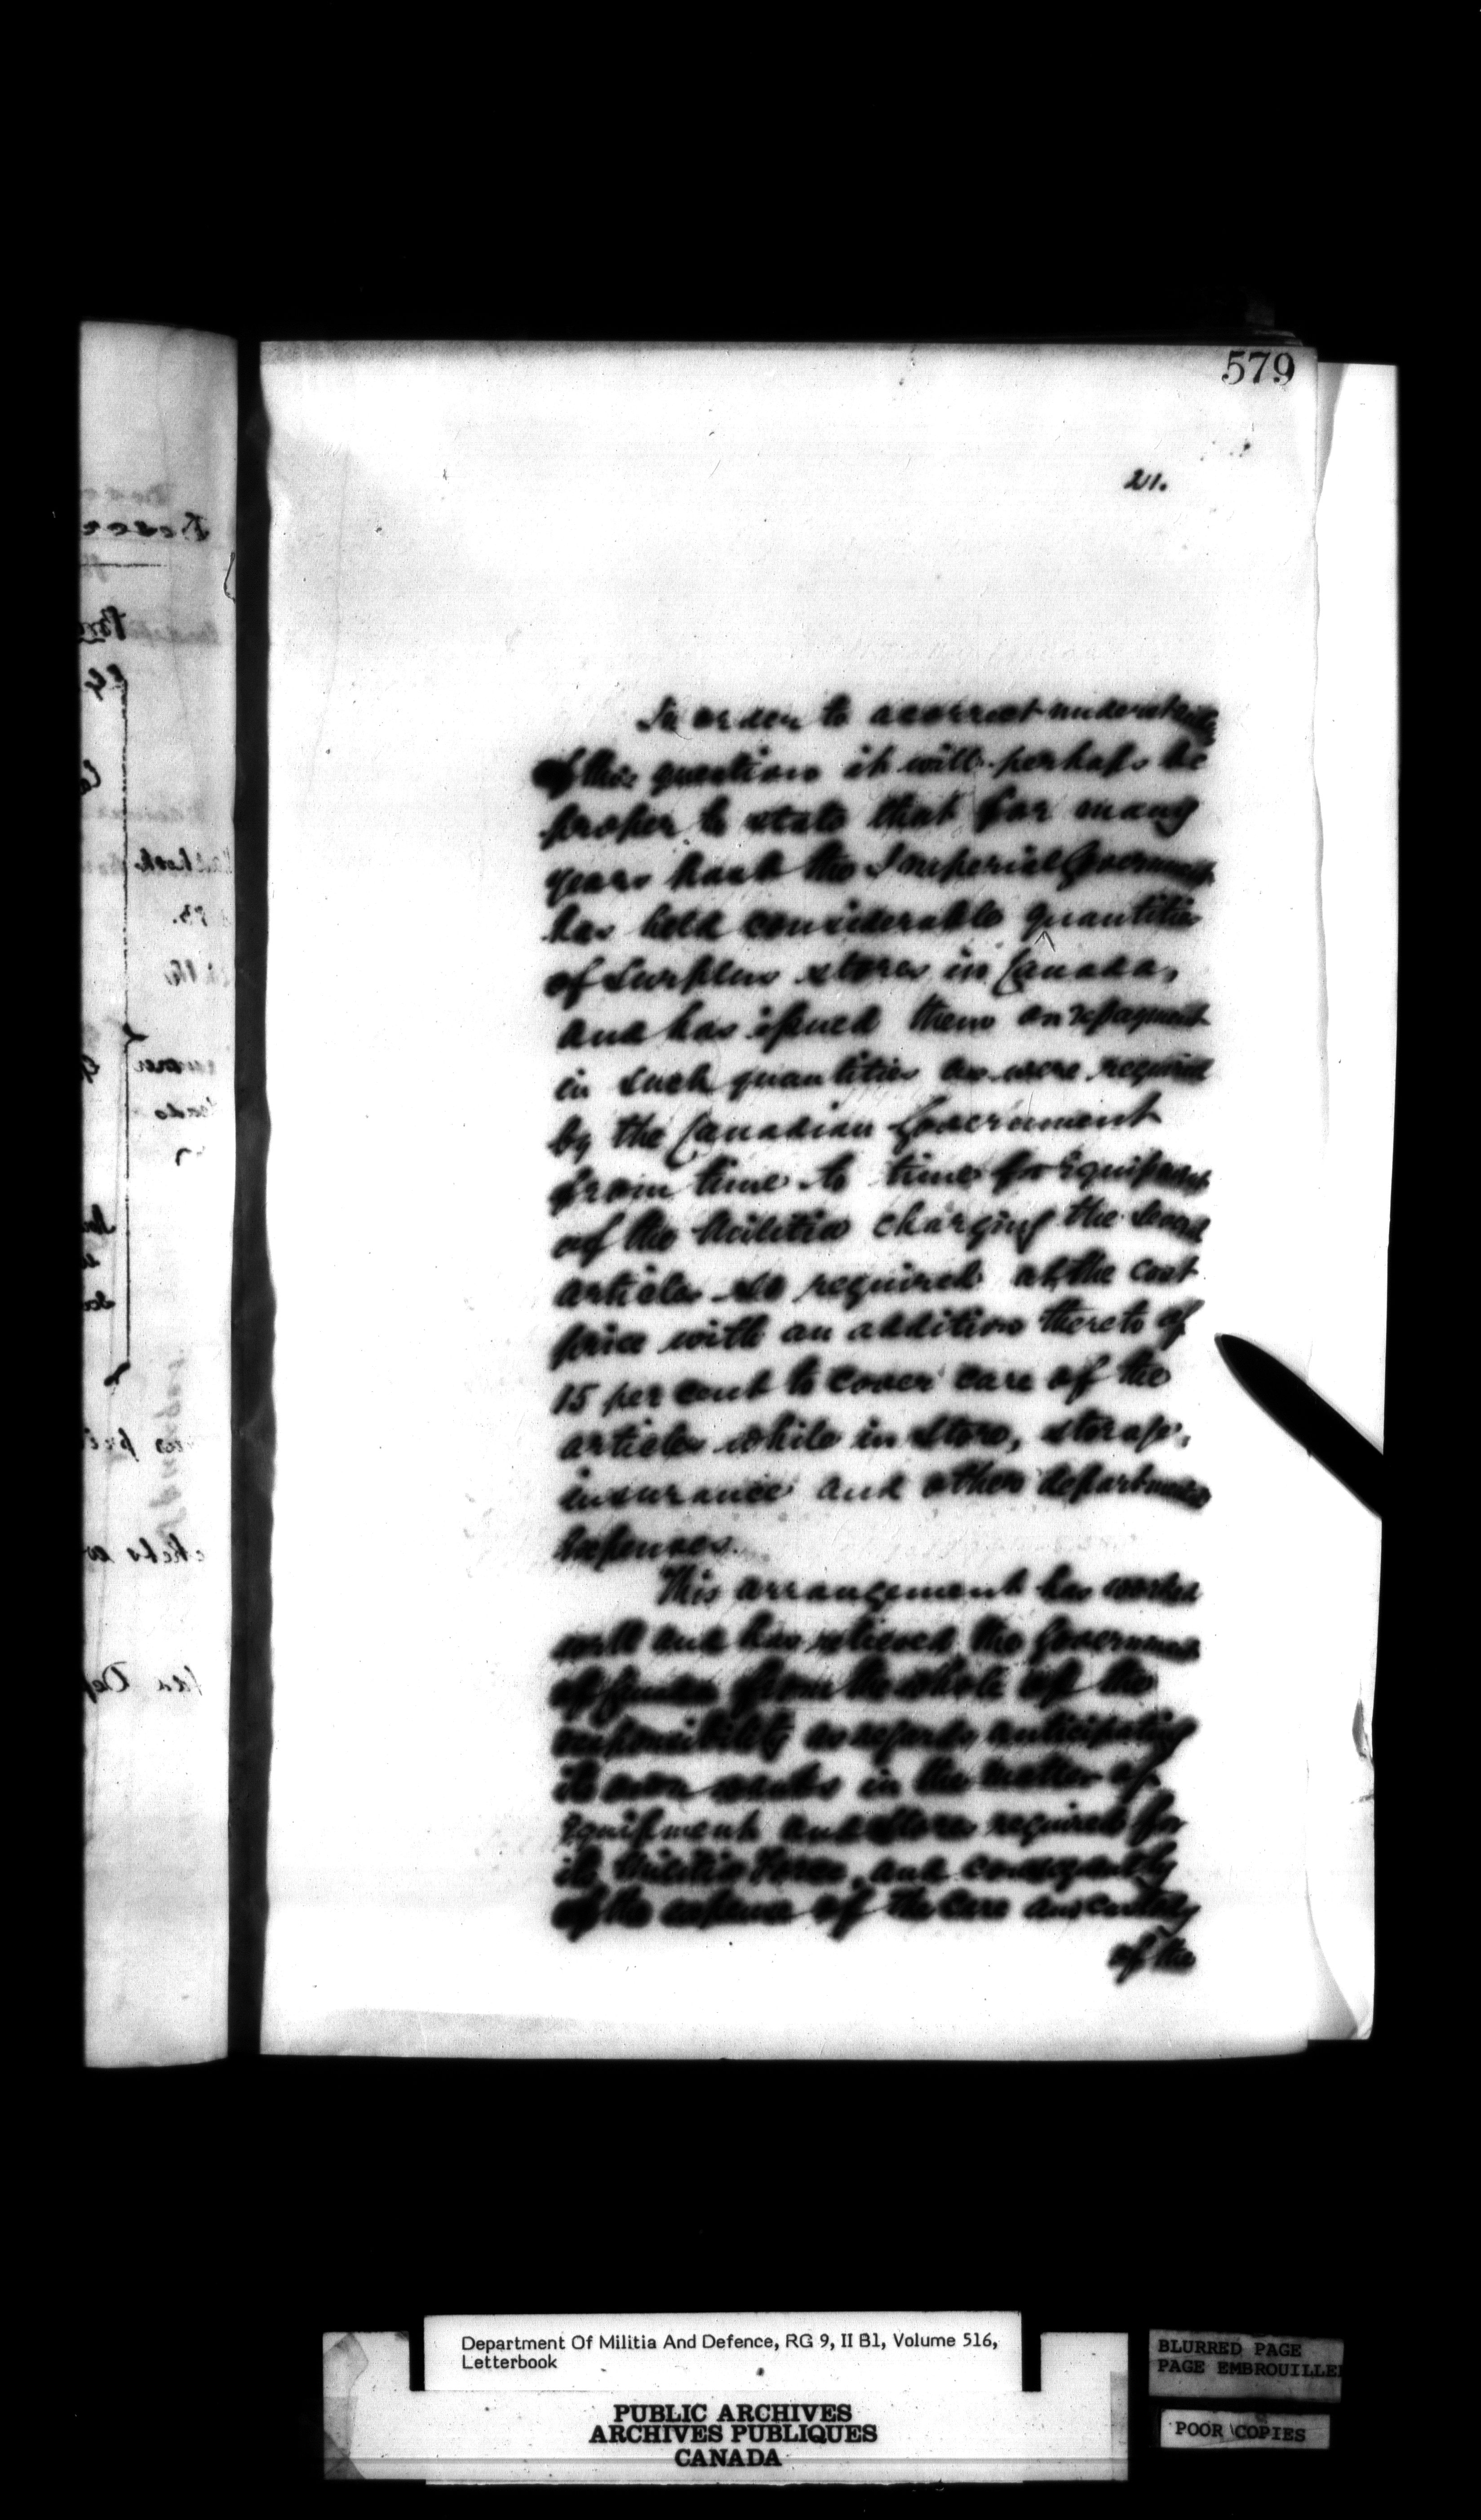 579
21.
In order to a correct understanding
of this question it will perhaps be
proper to state that for many
years back the Imperial Government
has held considerable quantities
of Surplus stores in Canada,
and has issued them on repayment
in such quantities as were required
by the Canadian Government
from time to time for Equipment
of the Militia charging the several
articles so required at the cost
price with an addition thereto of
15 per cent to cover care of the
articles while in store, storage,
insurance and other departmental
expenses.
This arrangement has worked
well and has relieved the Government
of Canada from the whole of the
responsibility as regards anticipating
its own wants in the matter of
Equipment and Stores required for
its Militia Force, and consequently
of the expense of the care and custody
of the
Department Of Militia And Defence, RG 9, II B1, Volume 516,
Letterbook
PUBLIC ARCHIVES
ARCHIVES PUBLIQUES
CANADA
BLURRED PAGE
PAGE EMBROUILLEE
POOR COPIES